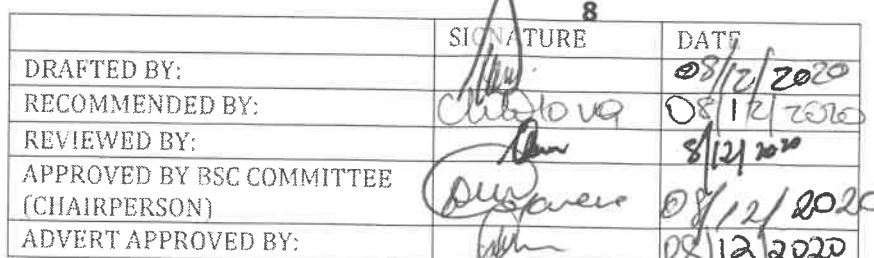 8
SIGNATURE DATE
DRAFTED BY: 08/12/2020
RECOMMENDED BY: 08/12/2020
REVIEWED BY: 8/12/2020
APPROVED BY BSC COMMITTEE
(CHAIRPERSON) 08/12/2020
ADVERT APPROVED BY: 08/12/2020